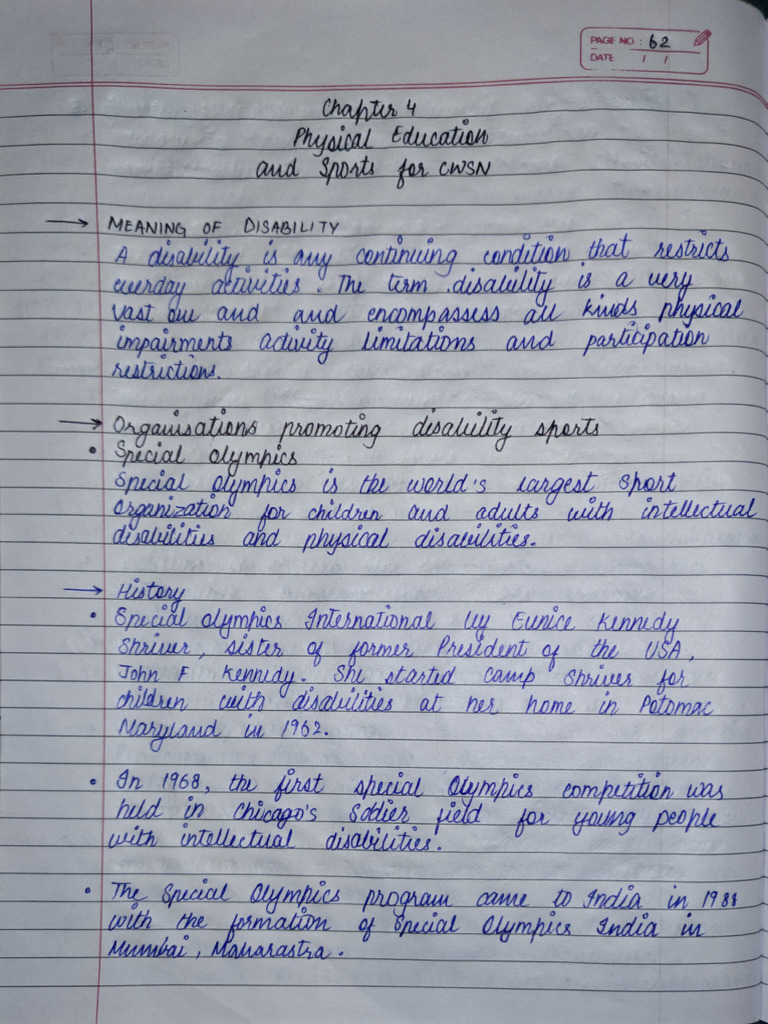 PAGE NO : 62
DATE / /
Chapter 4
Physical Education
and Sports for CWSN
→ MEANING OF DISABILITY
A disability is any continuing condition that restricts
everday activities. The term disability is a very
vast one and and encompassess all kinds physical
impairments activity limitations and participation
restrictions.
→ Organisations promoting disability sports
• Special Olympics
Special Olympics is the world's largest sport
organization for children and adults with intellectual
disabilities and physical disabilities.
→ History
• Special Olympics International by Eunice Kennedy
Shriver, sister of former President of the USA,
John F Kennedy. She started camp Shriver for
children with disabilities at her home in Potomac
Maryland in 1962.
• In 1968, the first special Olympics competition was
held in Chicago's Soldier field for young people
with intellectual disabilities.
• The Special Olympics program came to India in 1988
with the formation of Special Olympics India in
Mumbai, Maharastra.